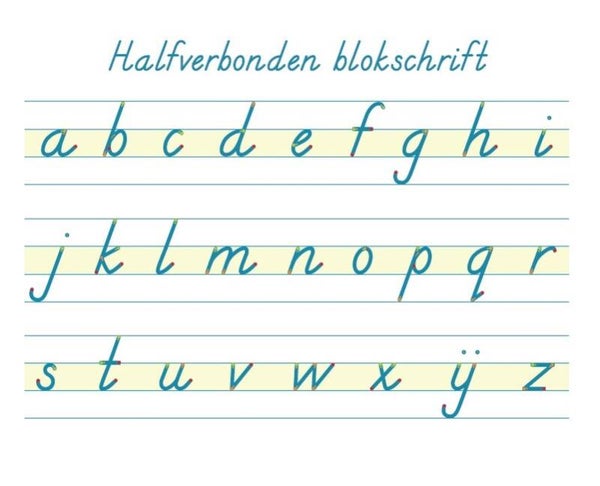 Halfverbonden blokschrift
a b c d e f g h i
j k l m n o p q r
s t u v w x ÿ z